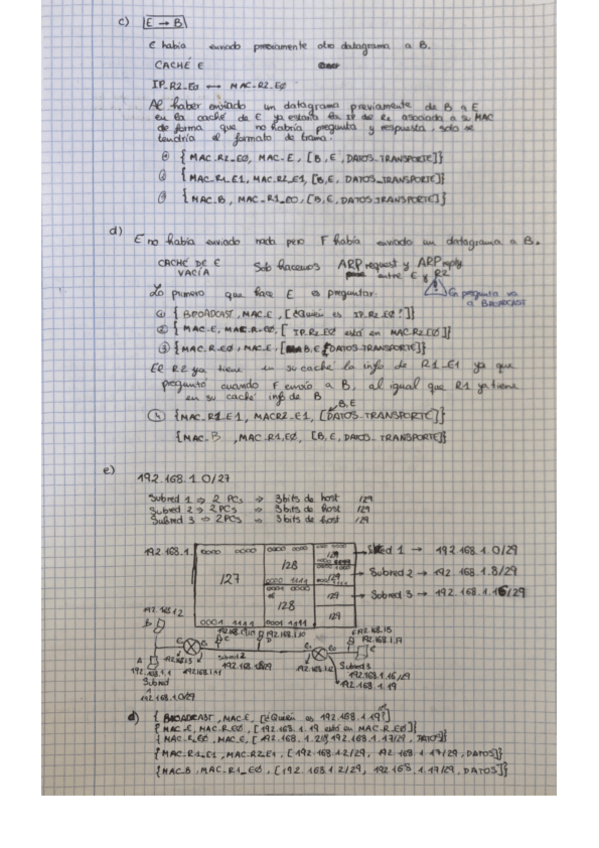 c) E → B
E había enviado previamente otro datagrama a B.
CACHÉ E
IP_R2_E0 ⟷ MAC_R2_E0
Al haber enviado un datagrama previamente de B a E
en la caché de E ya estaría la IP de R2 asociada a su MAC
de forma que no habría pregunta y respuesta, solo se
tendría el formato de trama.
{MAC_R2_E0, MAC_E, [B, E, DATOS_TRANSPORTE]}
{MAC_R1_E1, MAC_R2_E1, [B, E, DATOS_TRANSPORTE]}
{MAC_B, MAC_R1_E0, [B, E, DATOS TRANSPORTE]}
d) E no había enviado nada pero F había enviado un datagrama a B.
CACHÉ DE E
VACÍA
Solo hacemos ARP request y ARP reply
entre E y R2
Lo primero que hace E es preguntar
En pregunta va
a BROADCAST
① {BROADCAST, MAC_E, [¿Quién es IP_R2_E0?]}
② {MAC_E, MAC_R_E0, [IP_R2_E0 está en MAC_R2_E0]}
③ {MAC_R_E0, MAC_E, [B, E, DATOS_TRANSPORTE]}
El R2 ya tiene en su caché la info de R1_E1 ya que
preguntó cuando F envío a B, al igual que R1 ya tiene
en su caché info de B
④ {MAC_R1_E1, MACR2_E1, [B, E, DATOS_TRANSPORTE]}
{MAC_B, MAC_R1_E0, [B, E, DATOS_TRANSPORTE]}
e) 192.168.1.0/27
Subred 1 ⇒ 2 PCs ⇒ 3 bits de host /29
Subred 2 ⇒ 2 PCs ⇒ 3 bits de host /29
Subred 3 ⇒ 2 PCs ⇒ 3 bits de host /29
192.168.1.
0000 0000
/27
0000 0000
/28
/29
Subred 1 → 192.168.1.0/29
0000 1111
/29
Subred 2 → 192.168.1.8/29
/28
/29
Subred 3 → 192.168.1.16/29
/29
192.168.1.2
B
A
192.168.1.1
Subred
1
192.168.1.0/29
192.168.1.3
Subred 2
192.168.1.10
Subred 3
192.168.1.16/29
192.168.1.19
d) {BROADCAST, MAC_E, [¿Quién es 192.168.1.19?]}
{MAC_E, MAC_R_E0, [192.168.1.19 está en MAC_R_E0]}
{MAC_R_E0, MAC_E, [192.168.1.2/29, 192.168.1.17/29, DATOS]}
{MAC_R1_E1, MAC_R2_E1, [192.168.1.2/29, 192.168.1.17/29, DATOS]}
{MAC_B, MAC_R1_E0, [192.168.1.2/29, 192.168.1.17/29, DATOS]}